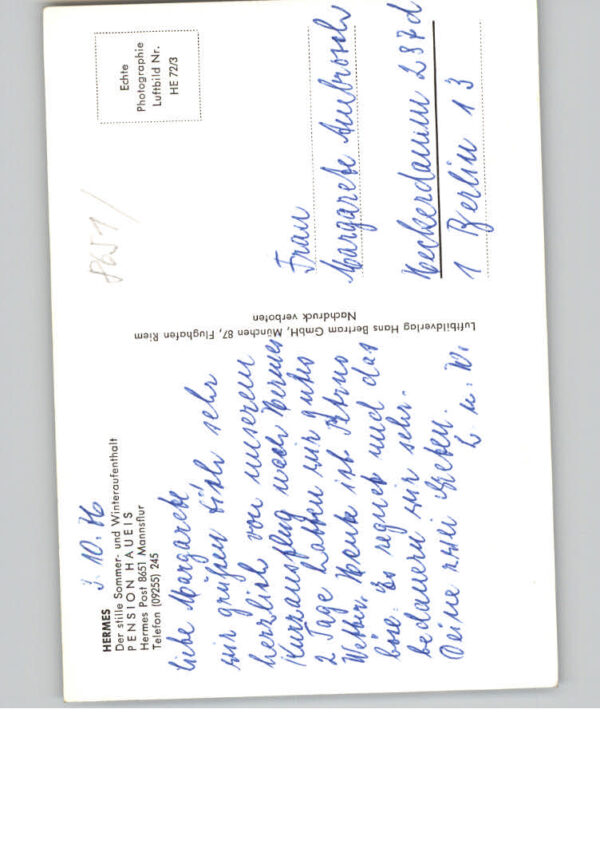 HERMES
Der stille Sommer- und Winteraufenthalt
PENSION HAUEIS
Hermes Post 8651 Mannsflur
Telefon (09255) 245
3. 10. 76
Liebe Margarete
wir grüßen Dich sehr
herzlich von unserem
Kurzausflug nach Hermes
2 Tage hatten wir gutes
Wetter. Heute ist Petrus
böse. Es regnet und das
bedauern wir sehr.
Deine zwei
Luftbildverlag Hans Bertram GmbH, München 87, Flughafen Riem
Nachdruck verboten
8651/
Echte
Photographie
Luftbild Nr.
HE 72/3
Frau
Margarete Ambrosch
Heckerdamm 237d
1 Berlin 13